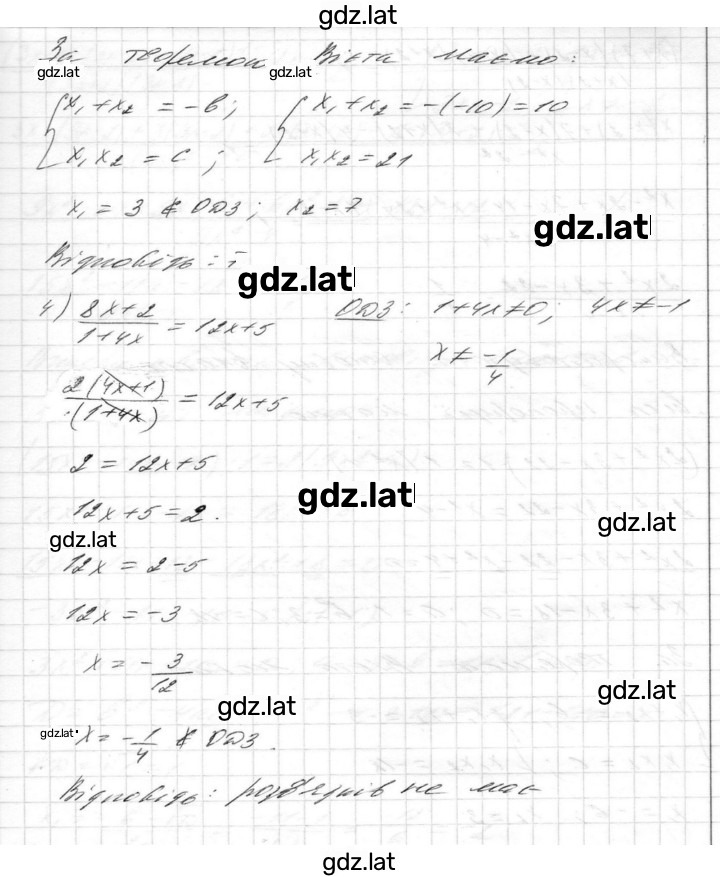 gdz.lat
За теоремою Вієта маємо:
gdz.lat gdz.lat
{ x₁ + x₂ = -b; { x₁ + x₂ = -(-10) = 10
x₁x₂ = c; x₁x₂ = 21
x₁ = 3 ∉ ОДЗ; x₂ = 7
gdz.lat
Відповідь: 7
gdz.lat
4) (8x+2)/(1+4x) = 12x+5 ОДЗ: 1+4x≠0; 4x≠-1
x ≠ -1/4
2(4x+1)/(1+4x) = 12x+5
2 = 12x+5
gdz.lat
12x+5=2.
gdz.lat
gdz.lat
12x = 2-5
12x = -3
x = -3/12
gdz.lat
gdz.lat
gdz.lat
x = -1/4 ∉ ОДЗ.
Відповідь: розв'язків не має
gdz.lat